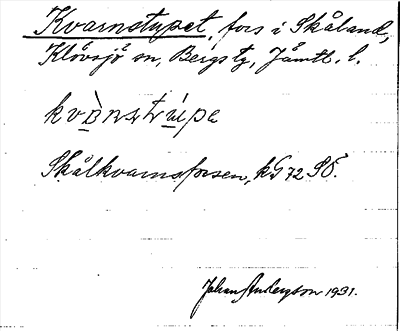 Kvarnstupet, fors i Skåland,
Klövsjö sn, Bergs tg, Jämtl. l.
kvɒ̀nstrúpa
Skålkvarnsforsen, kG 72 SÖ.
Johan Anderson 1931.